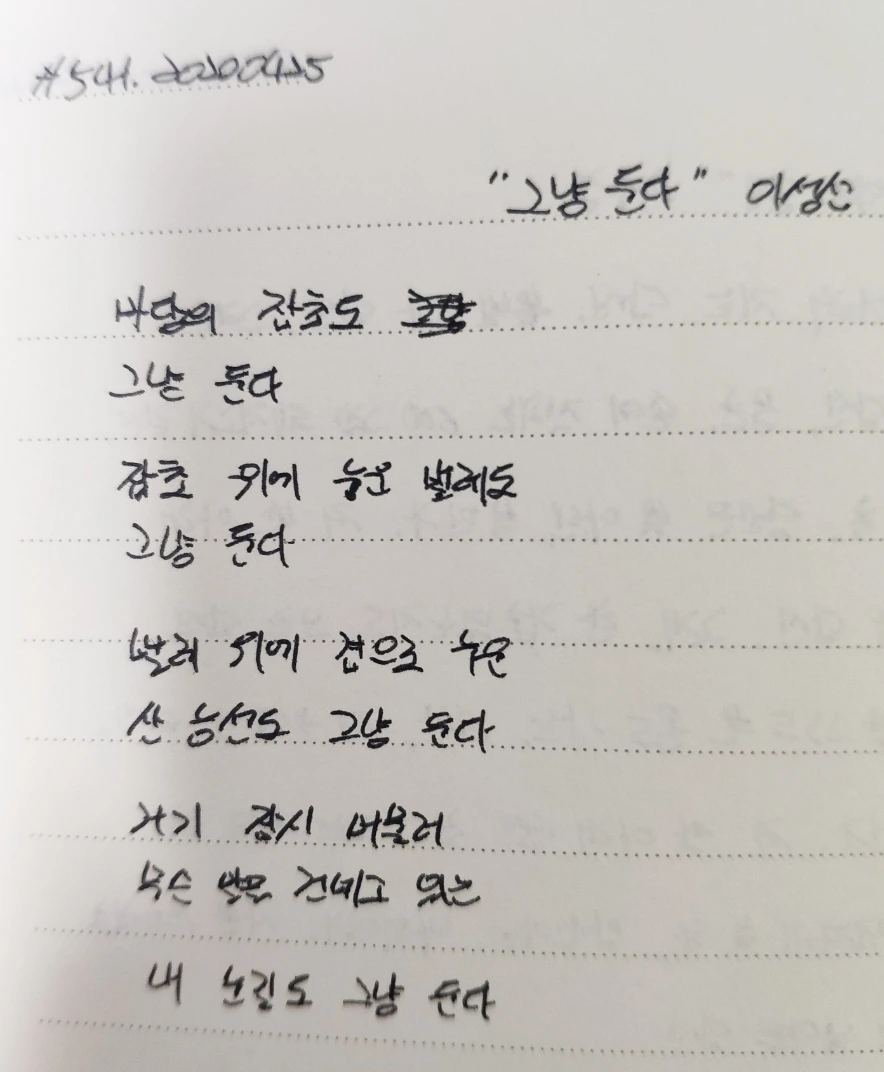 #541. 20200425
"그냥 둔다" 이성선
마당의 잡초도
그냥 둔다
잡초 위에 누운 벌레도
그냥 둔다
벌레 위에 겹으로 누운
산 능선도 그냥 둔다
거기 잠시 머물러
무슨 말을 건네고 있는
내 눈길도 그냥 둔다